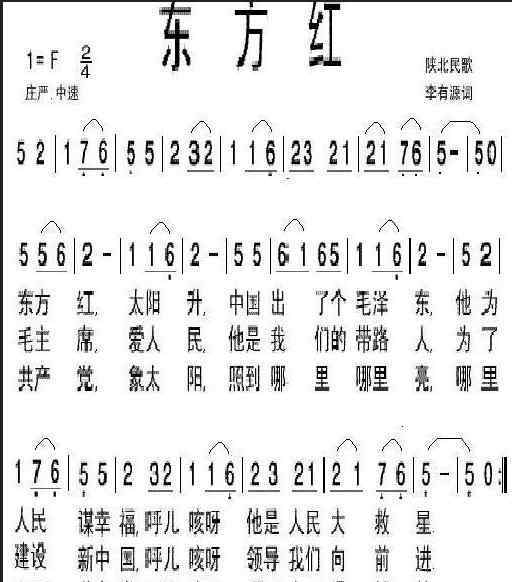 东方红
1=F 2/4
陕北民歌
庄严.中速
李有源词
5 2 | 1 7 6 | 5 5 | 2 32 | 1 1 6 | 23 21 | 21 76 | 5 - | 50 |
5 5 6 | 2 - | 1 1 6 | 2 - | 5 5 | 6· 1 65 | 1 1 6 | 2 - | 5 2 |
东方 红, 太阳 升, 中国 出 了个 毛泽 东, 他 为
毛主 席, 爱人 民, 他是 我 们的 带路 人, 为了
共产 党, 象太 阳, 照到 哪 里 哪里 亮, 哪里
1 7 6 | 5 5 | 2 32 | 1 1 6 | 2 3 21 | 2 1 7 6 | 5 - | 5 0 :|
人民 谋幸 福, 呼儿 咳呀 他是 人民 大 救 星.
建设 新中 国, 呼儿 咳呀 领导 我们 向 前 进.